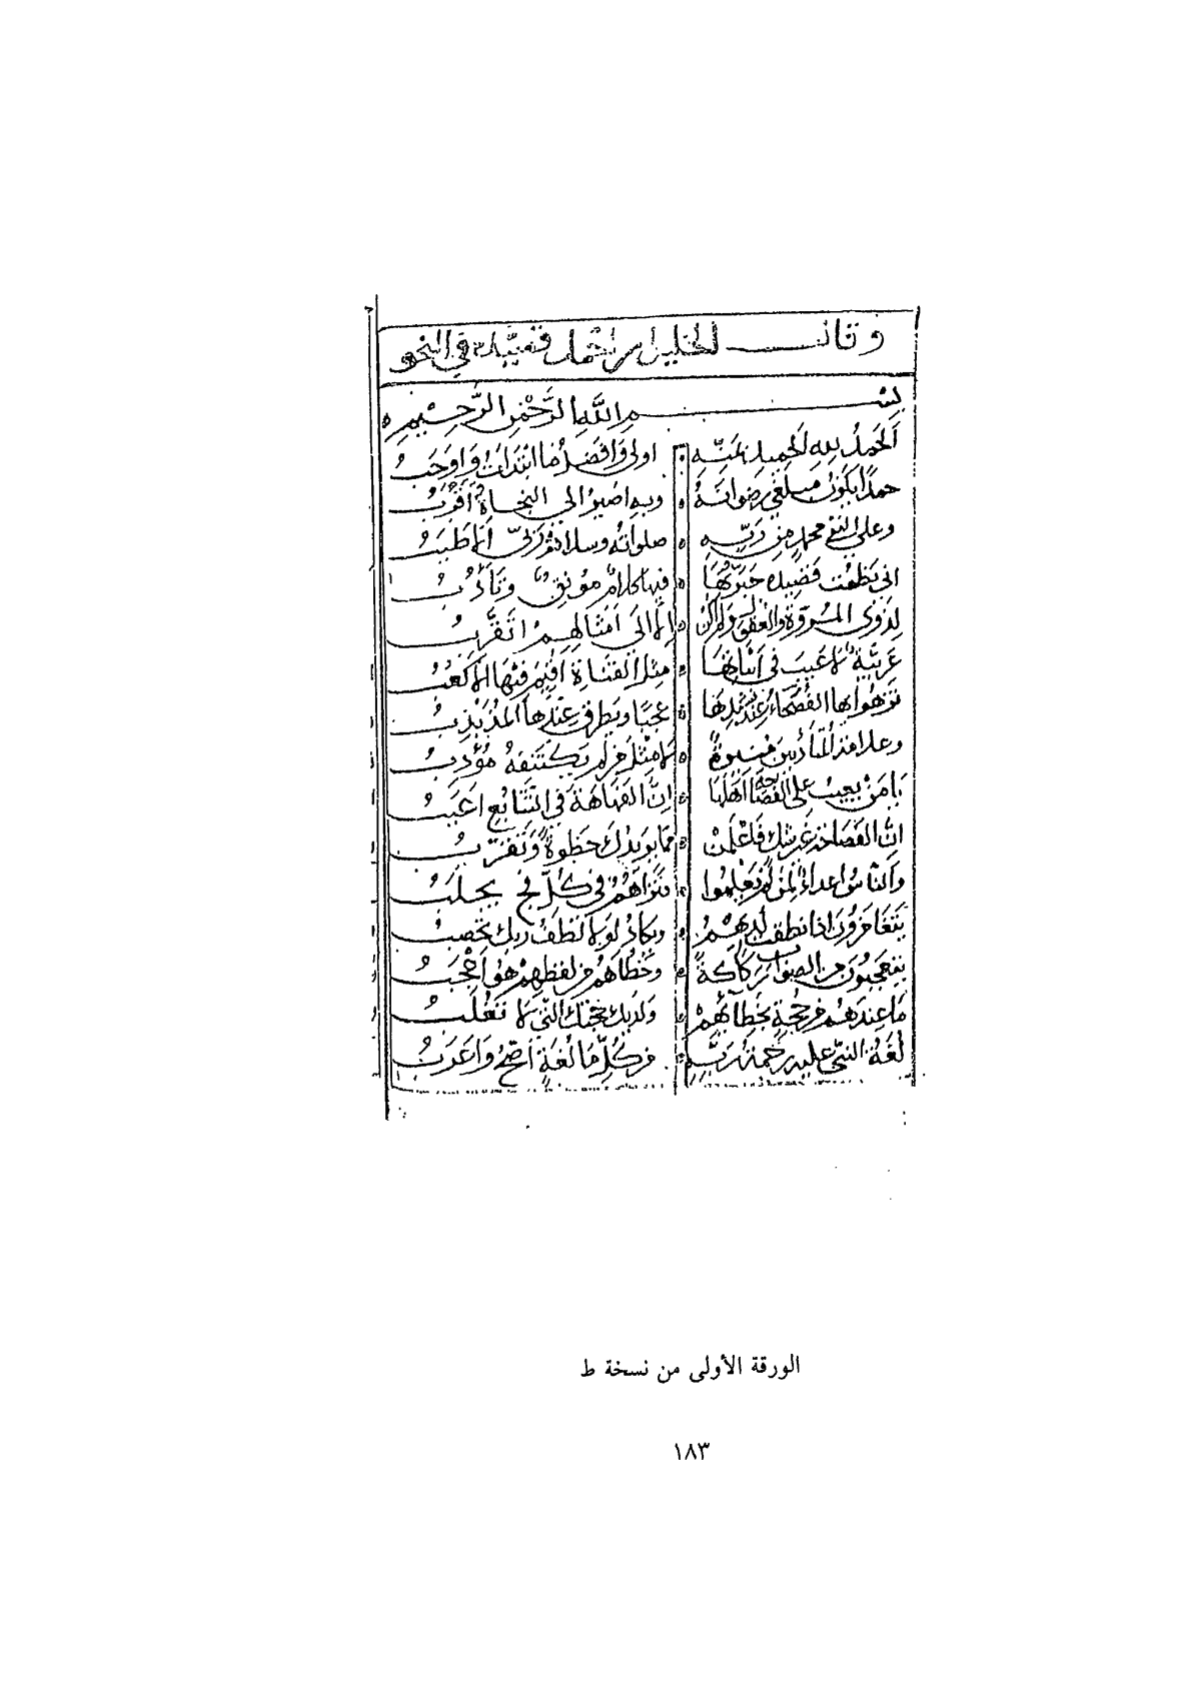 وقال الخليل بن احمد قصيدة في النحو
بسم الله الرحمن الرحيم
الحمد لله الحميد بمنه اولى وافضل ما ابتدات واوجب
حمدا يكون مبلغي رضوانه وبه اصير الى النجاة واقرب
وعلى النبي محمد من ربه صلواته وسلام ربي الاطيب
اني نظمت قصيدة حبرتها فيها كلام مونق وتأدب
لذوي المروة والعقول ولم اكن الا الى امثالهم اتقرب
عربية لا عيب في ابياتها مثل القناة اقيم فيها الاكعب
تزهوا بها الفصحاء عند نشيدها عجبا ويطرق عندها المتذبذب
متأدبين لا مثل من لم يكتنفه مؤدب
يا من يعيب على الفصاحة اهلها ان الفهاهة في التتابع اعيب
ان الفصاحة غير شك فاعلمن مما يزيدك حظوة وتقرب
والناس اعداء لمن لم يعلموا فتراهم في كل فج يجلب
يتغامزون اذا نطقت لديهم وتكاد لولا لطف ربك تحصب
يتعجبون من الصواب ركاكة وخطاهم من لفظهم هو اعجب
ما عندهم من حجة بخطائهم ولديك حجتك التي لا تغلب
لغة النبي عليه رحمة ربه من كل ما لغة اصح واعرب
الورقة الأولى من نسخة ط
١٨٣